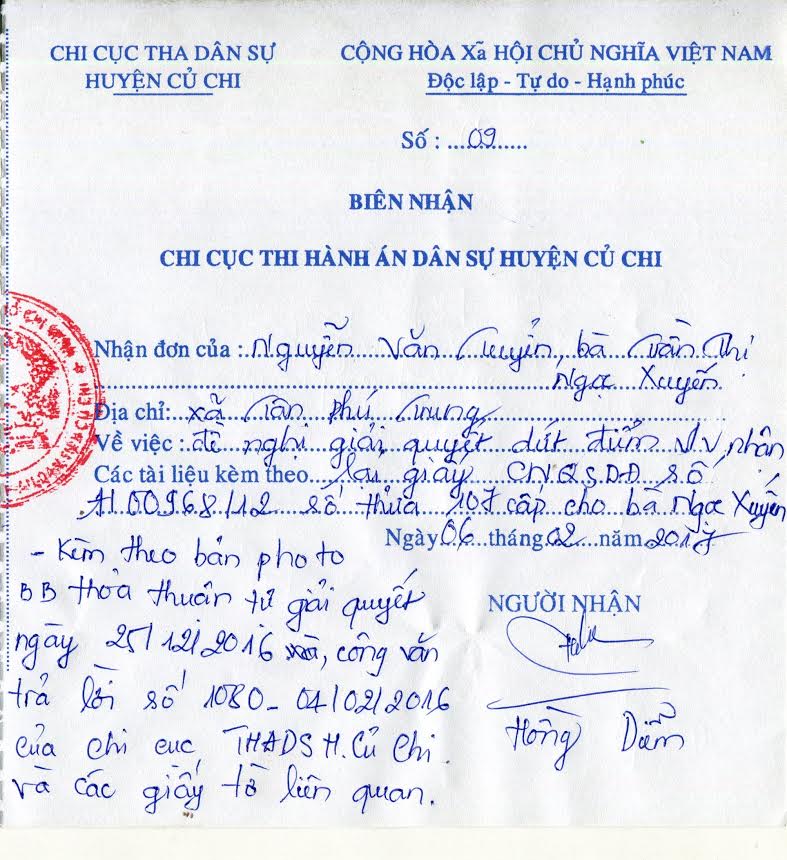 CHI CỤC THA DÂN SỰ
HUYỆN CỦ CHI
CỘNG HÒA Xã HỘI CHỦ NGHĨA VIỆT NAM
Độc lập - Tự do - Hạnh phúc
Số : ....09.......
BIÊN NHẬN
CHI CỤC THI HÀNH ÁN DÂN SỰ HUYỆN CỦ CHI
Nhận đơn của : Nguyễn Văn Tuyển, bà Trần Thị
Ngọc Xuyến.
Địa chỉ: xã Tân Phú Trung
Về việc : đề nghị giải quyết dứt điểm v/v nhận
Các tài liệu kèm theo lại giấy CNQSDĐ số
00968/12 số thửa 107 cấp cho bà Ngọc Xuyến
Ngày 06 tháng 02 năm 2017
- Kèm theo bản photo
BB thỏa thuận tự giải quyết
ngày 25/12/2016, công văn
trả lời số 1080 - 04/02/2016
của chi cục THADS H. Củ Chi.
và các giấy tờ liên quan.
NGƯỜI NHẬN
Hồng Diễm